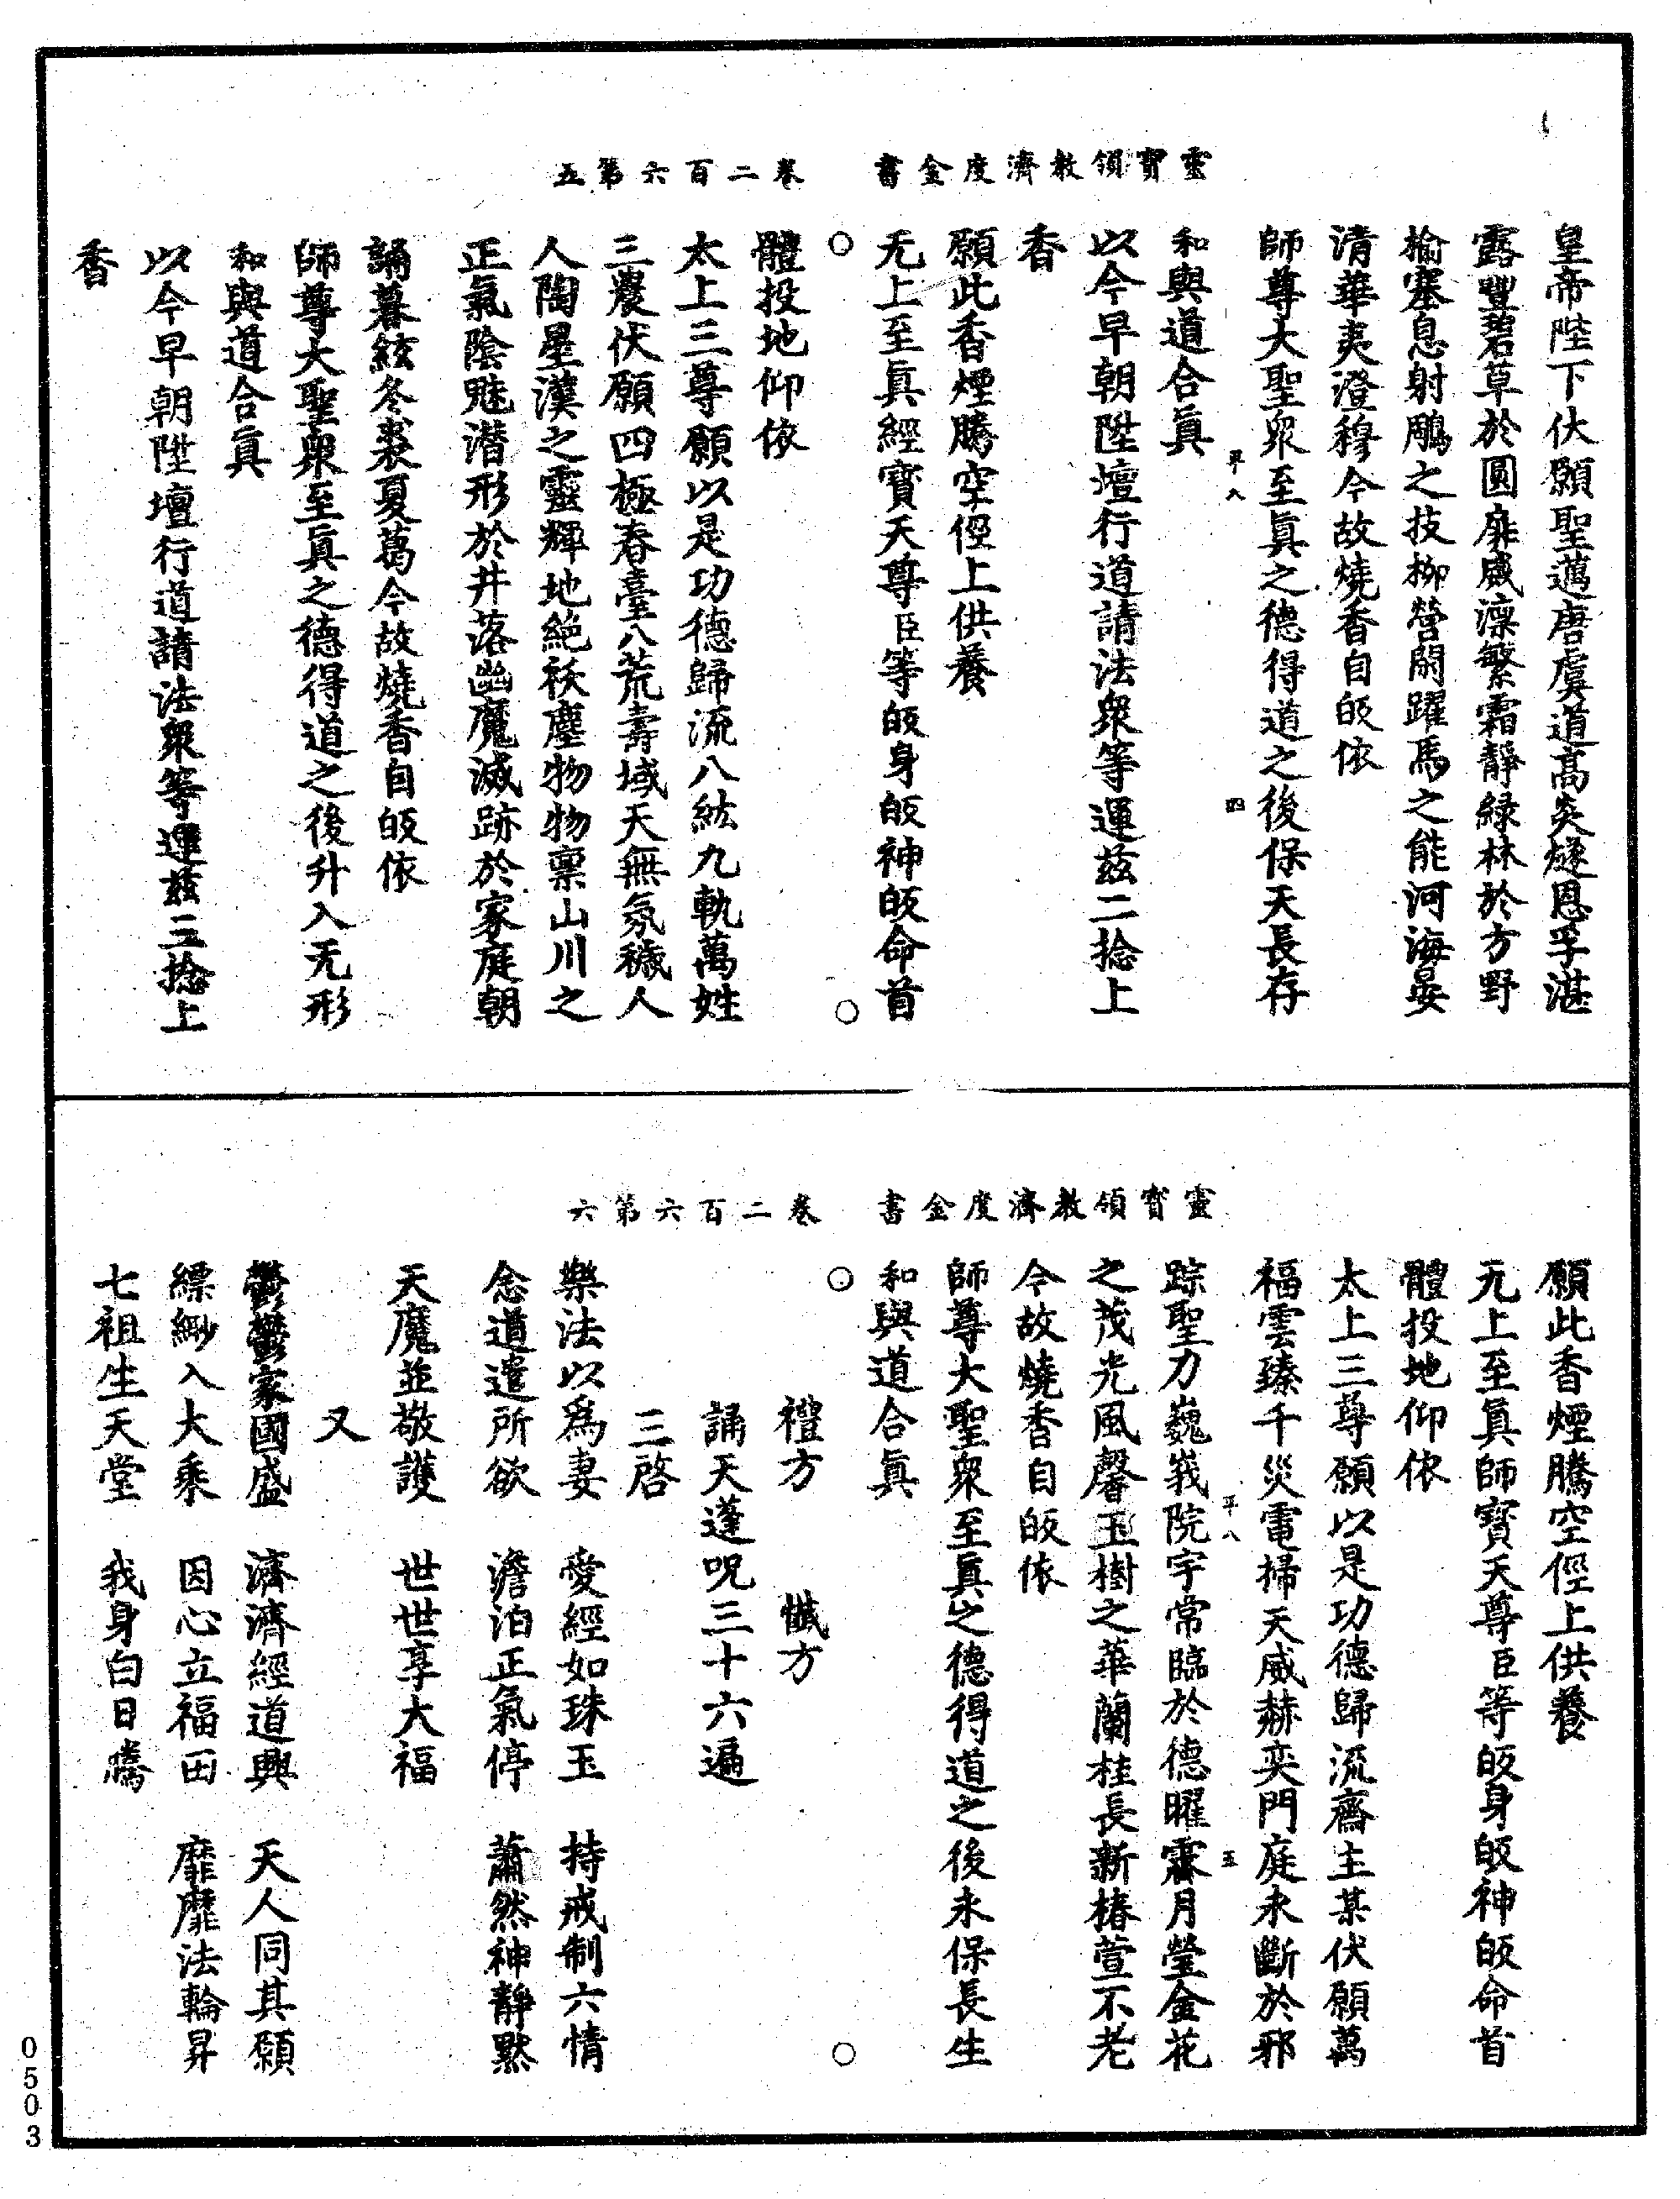 靈寶領教濟度金書　卷二百六第五
皇帝陛下伏願聖邁唐虞道高炎燧恩孚湛
露豐碧草於圓扉威凜繁霜靜緑林於方野
榆塞息射鵰之技柳營閑躍馬之能河海晏
清華夷澄穆今故燒香自皈依
師尊大聖衆至眞之德得道之後保天長存
和與道合眞
平八　四
以今早朝陞壇行道請法衆等運茲二捻上
香
願此香煙騰空徑上供養
无上至眞經寶天尊臣等皈身皈神皈命首
體投地仰依
太上三尊願以是功德歸流八紘九軌萬姓
三農伏願四極春臺八荒壽域天無氛穢人
人陶星漢之靈輝地絶祆塵物物禀山川之
正氣陰魅潛形於井落幽魔滅跡於家庭朝
誦暮絃冬裘夏葛今故燒香自皈依
師尊大聖衆至眞之德得道之後升入无形
和與道合眞
以今早朝陞壇行道請法衆等運茲三捻上
香
靈寶領教濟度金書　卷二百六第六
願此香煙騰空徑上供養
无上至眞師寶天尊臣等皈身皈神皈命首
體投地仰依
太上三尊願以是功德歸流齋主某伏願萬
福雲臻千災電掃天威赫奕門庭永斷於邪
平八　五
踪聖力巍峩院宇常臨於德曜霽月瑩金花
之茂光風馨玉樹之華蘭桂長新椿萱不老
今故燒香自皈依
師尊大聖衆至眞之德得道之後永保長生
和與道合眞
禮方　懺方
誦天蓬呪三十六遍
三啓
樂法以爲妻　愛經如珠玉　持戒制六情
念道遣所欲　澹泊正氣停　蕭然神靜默
天魔並敬護　世世享大福
又
鬱鬱家國盛　濟濟經道興　天人同其願
縹緲入大乘　因心立福田　靡靡法輪昇
七祖生天堂　我身白日騰
0503